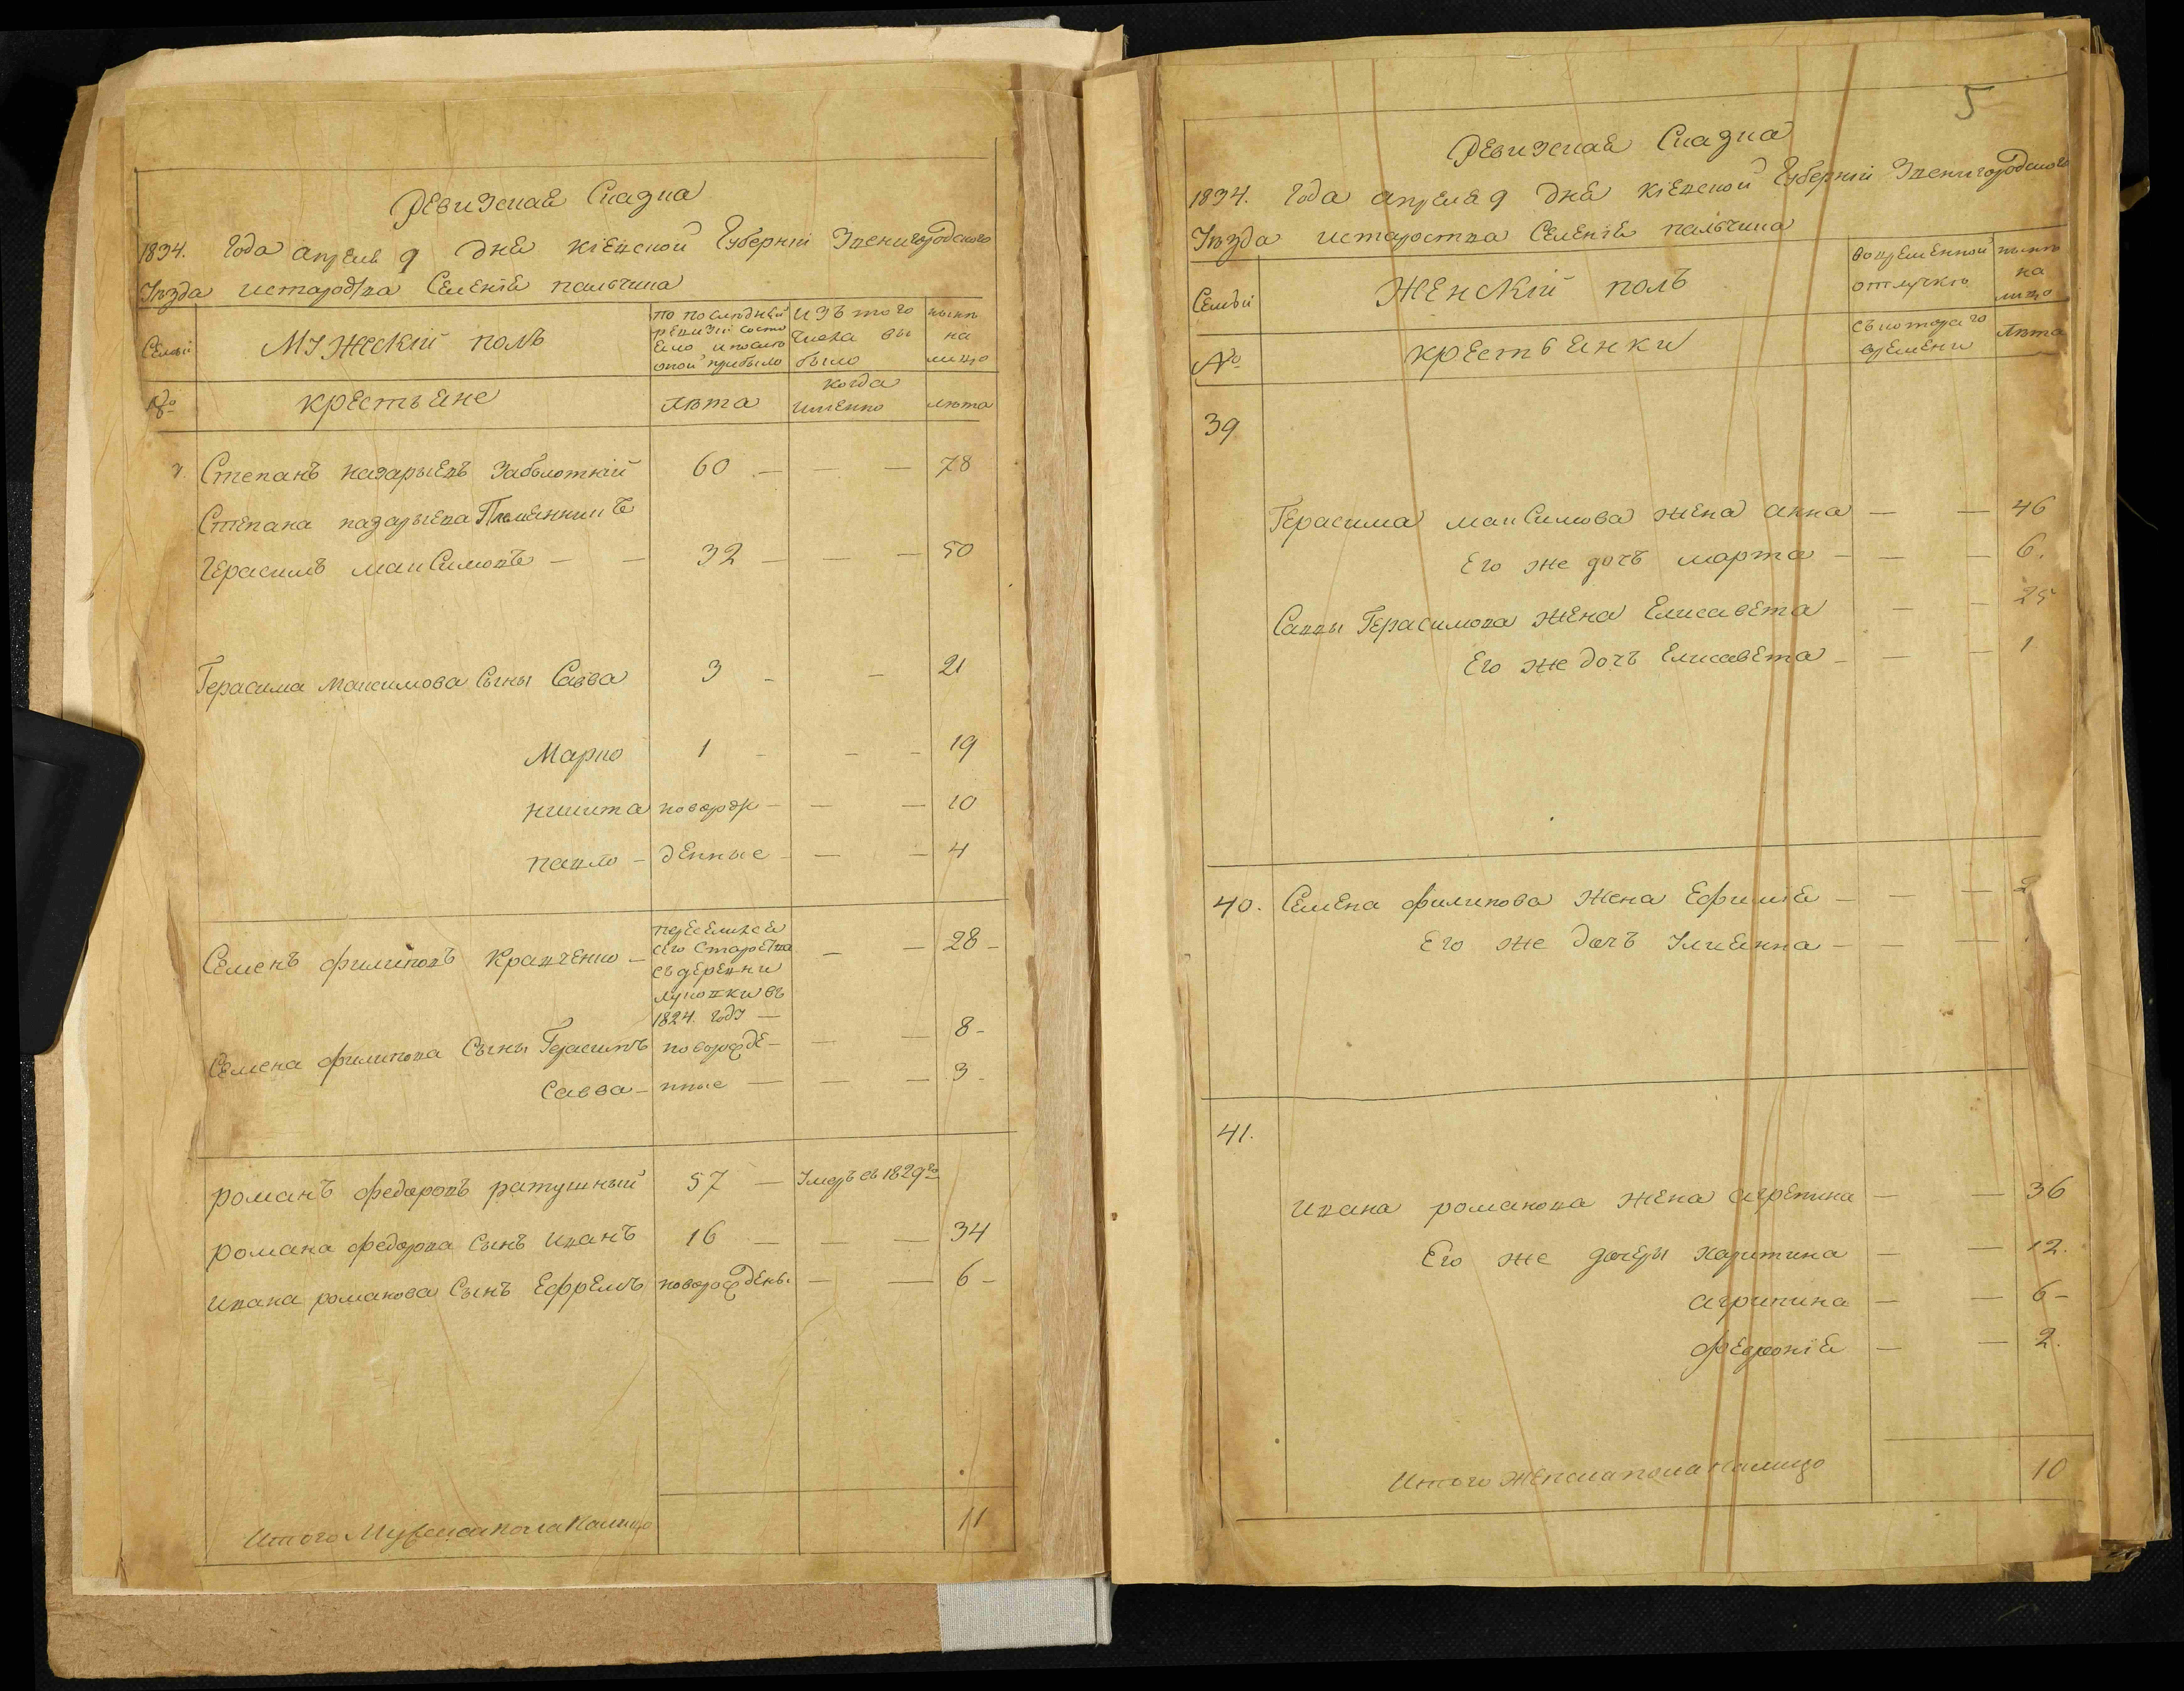 Ревизская Сказка
1834. Года апреля 9 дня кіевской Губерніи Звенигородского
Уезда и староства Селенія пальчика
Семьи
Мужескій полъ
по последней ревизіи состояло и после оной прибыло
изъ того числа выбыло
ныне на лицо
№
крестьяне
лета
когда именно
лета
Степанъ назарыевъ Заболотній 60 — — — 78
Степана назарыева Племенникъ
Герасимъ максимовъ — — 32 — — — 50
Герасима Максимова Сыны Савва 3 - - 21
Марко 1 - - - 19
никита новорож — — — 10
павло — денные — — - 4
Семенъ филиповъ Кравченко —
переселился
сего староства
съ деревни
лукови въ
1824. году —
— — 28 —
Семена филипова Сыны Герасимъ новорожде — — — 8 -
Савва — нные — — — 3 -
романъ федоровъ ратушный 57 — Умеръ въ 1829го
романа федорова Сынъ иванъ 16 — — — 34
ивана романова Сынъ Ефремъ новорожденъ. — — 6 -
Итого Мужеска пола налицо 11
5
Ревизская Сказка
1834. Года апреля 9 дня кіевской Губерніи Звенигородского
Уезда и староства Селенія пальчика
Семьи
Женскій полъ
во временной отлучке
ныне на лицо
№
крестьянки
съ которого времени
лета
39
Герасима максимова жена анна — — 46
Его же дочъ марта — — — 6.
Саввы Герасимова жена Елисавета — — 25
Его же дочъ Елисавета — — — 1
40. Семена филипова Жена Ефимія — — — 2
Его же дочъ Улиянна — — —
41.
ивана романова жена агрепина — — 36
Его же дочеры харитина — — 12.
агрипина — — 6 -
февронія — — 2.
Итого женска пола налицо 10